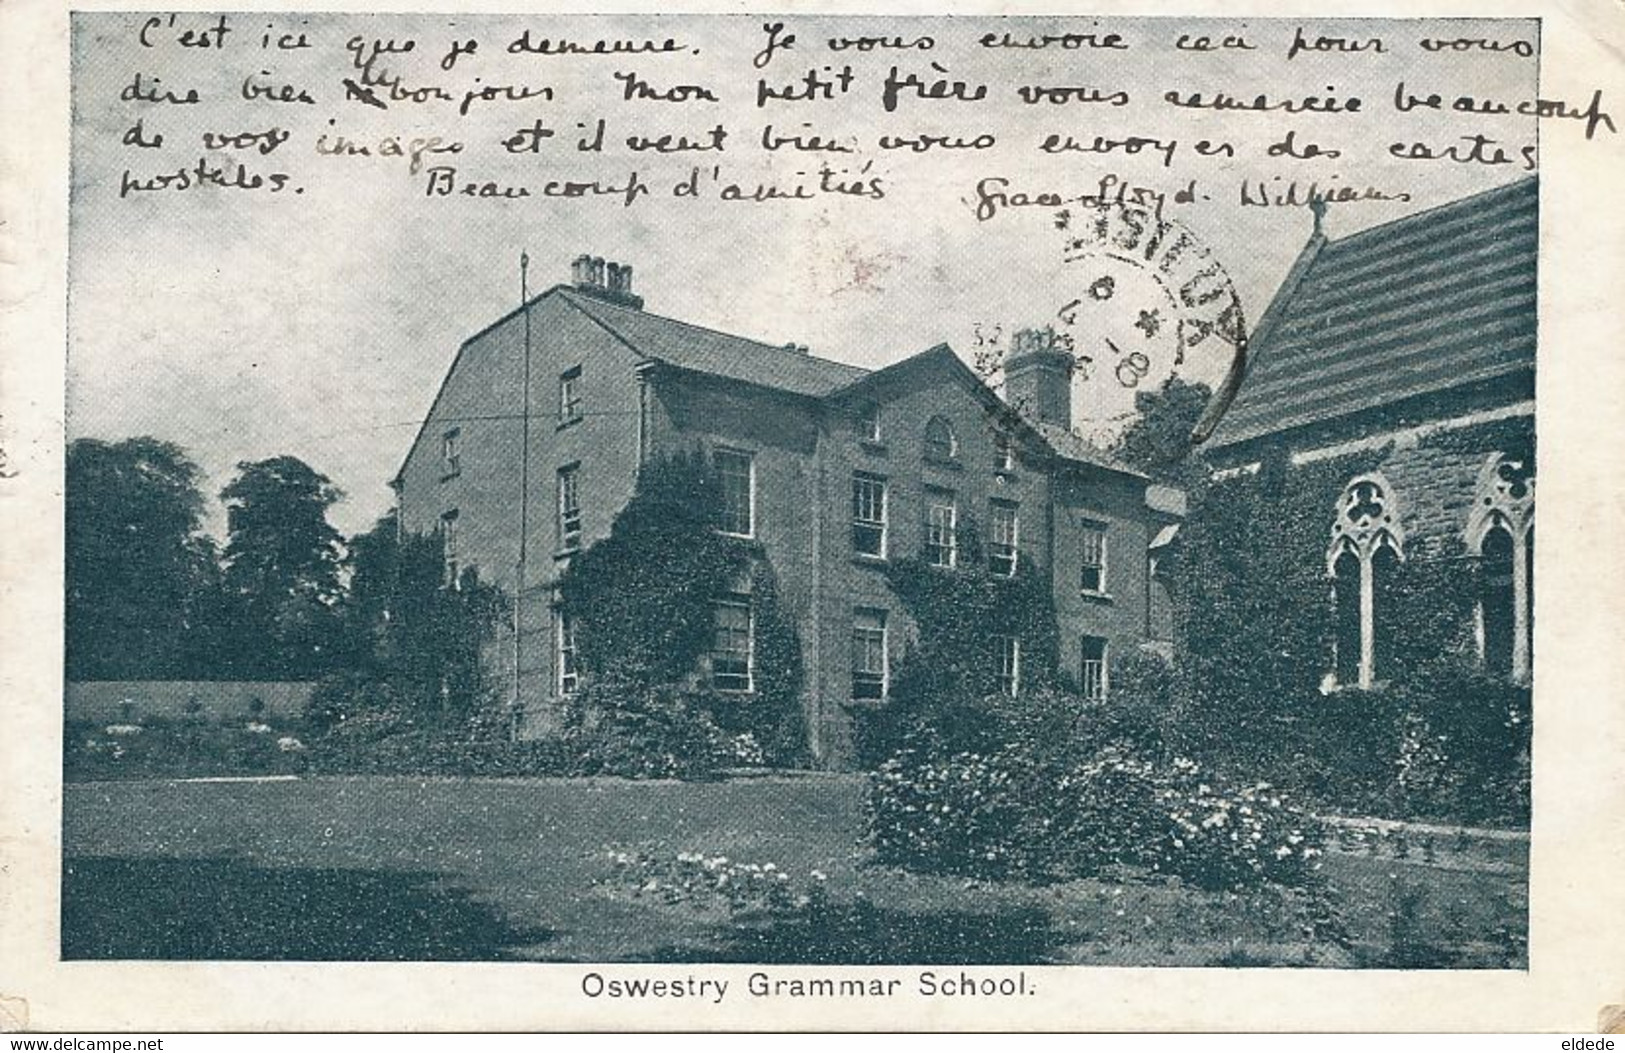 C'est ici que je demeure. Je vous envoie ceci pour vous
dire bien le bonjour Mon petit frère vous remercie beaucoup
de vos images et il veut bien vous envoyer des cartes
postales. Beaucoup d'amitiés Grace Lloyd. Williams
LISIEUX
Oswestry Grammar School.
delcampe.net
eldede